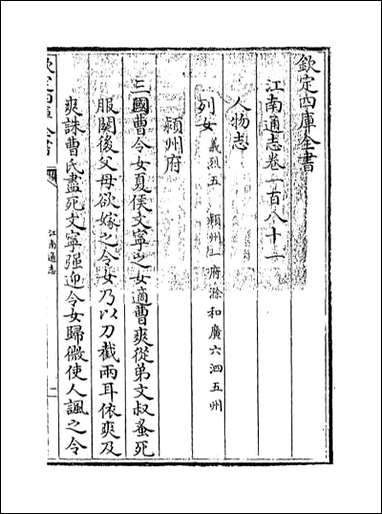 欽定四庫全書
江南通志卷一百八十二
人物志
列女 義烈五 潁州一府滁和廣六泗五州
潁州府
三國曹令女夏侯文寧之女適曹爽從弟文叔蚤死
服闋後父母欲嫁之令女乃以刀截兩耳依爽及
爽誅曹氏盡死文寧强迎令女歸微使人諷之令
欽定四庫全書
江南通志